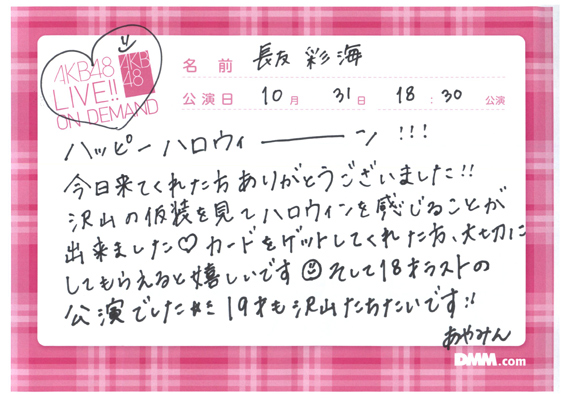 AKB48
LIVE!!
ON DEMAND
AKB
48
名前 長友 彩海
公演日 10月 31日 18:30公演
ハッピーハロウィーーーン!!!
今日来てくれた方ありがとうございました!!
沢山の仮装を見てハロウィンを感じることが
出来ました♡カードをゲットしてくれた方、大切に
してもらえると嬉しいです☺そして18才ラストの
公演でした 19才も沢山たちたいです!!
あやみん
DMM.com